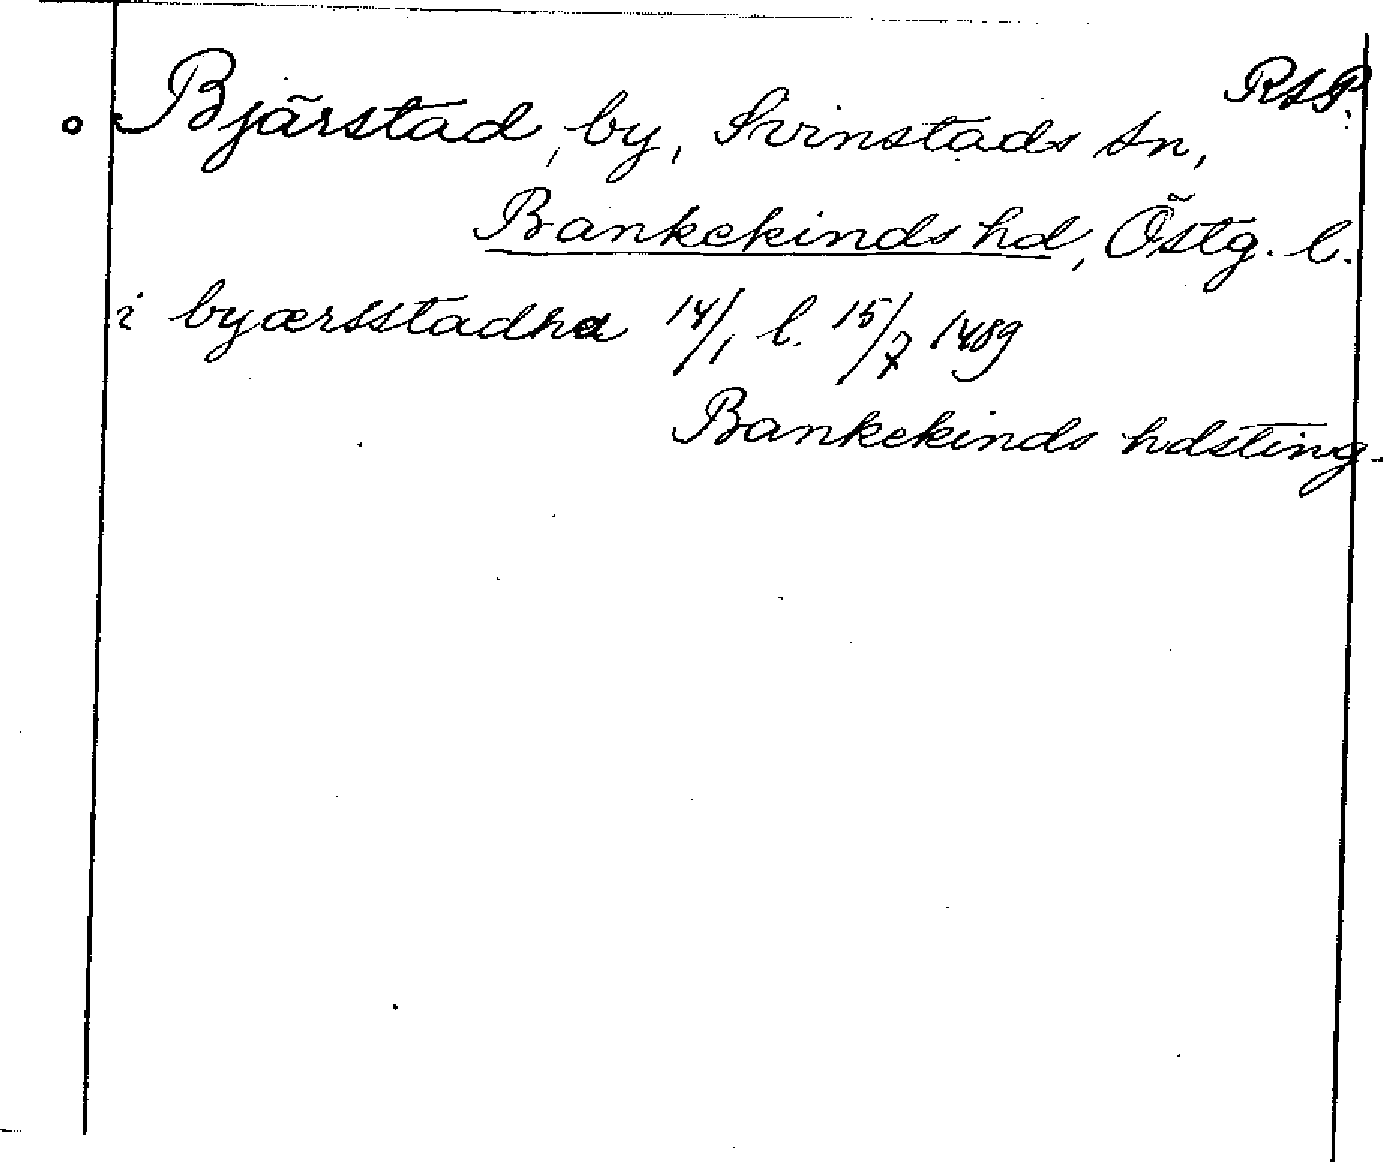 RAP.
Bjärstad, by, Svinstads sn,
Bankekinds hd, Östg. l.
i byærsstadha 14/1 l. 15/7 1489
Bankekinds hdsting.